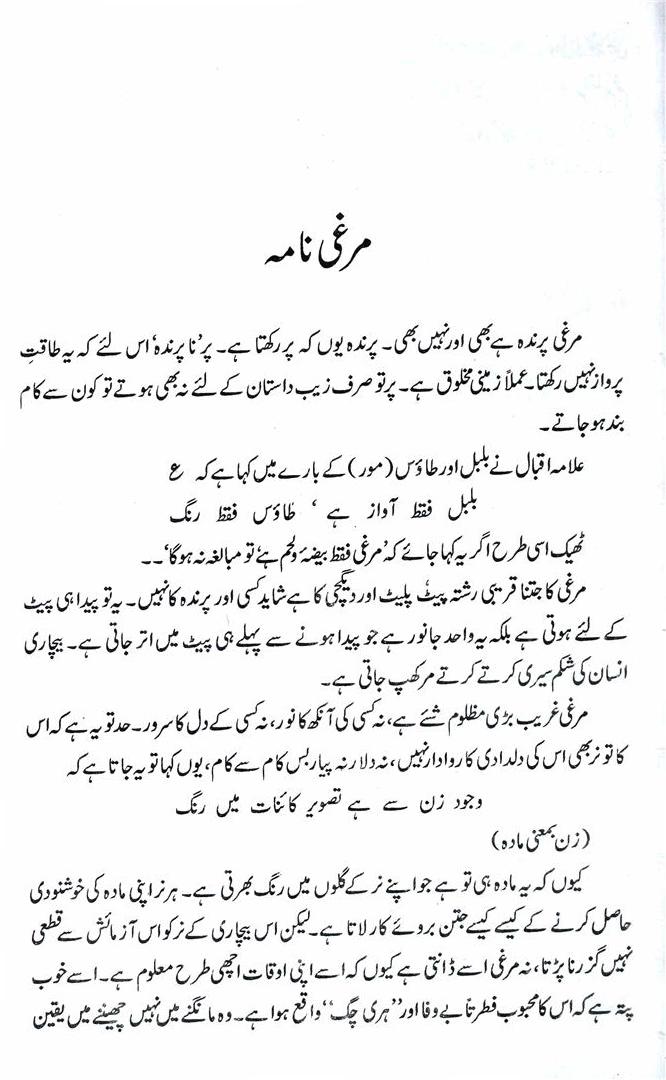 مرغی نامہ
مرغی پرندہ ہے بھی اور نہیں بھی۔ پرندہ یوں کہ پر رکھتا ہے۔ پر ’نا پرندہ‘ اس لئے کہ یہ طاقتِ
پرواز نہیں رکھتا۔ عملاً زمینی مخلوق ہے۔ پر تو صرف زیب داستان کے لئے نہ بھی ہوتے تو کون سے کام
بند ہو جاتے۔
علامہ اقبال نے بلبل اور طاؤس (مور) کے بارے میں کہا ہے کہ ع
بلبل فقط آواز ہے ‘ طاؤس فقط رنگ
ٹھیک اسی طرح اگر یہ کہا جائے کہ ’مرغی فقط بیضۂ ولحم ہے‘ تو مبالغہ نہ ہوگا‘۔۔
مرغی کا جتنا قریبی رشتہ پیٹ‘ پلیٹ اور دیگچی کا ہے شاید کسی اور پرندہ کا نہیں۔ یہ تو پیدا ہی پیٹ
کے لئے ہوتی ہے بلکہ یہ واحد جانور ہے جو پیدا ہونے سے پہلے ہی پیٹ میں اتر جاتی ہے۔ بیچاری
انسان کی شکم سیری کرتے کرتے مرکھپ جاتی ہے۔
مرغی غریب بڑی مظلوم شئے ہے، نہ کسی کی آنکھ کا نور، نہ کسی کے دل کا سرور۔ حد تو یہ ہے کہ اس
کا تو نر بھی اس کی دلدادی کا روادار نہیں، نہ دلار نہ پیار بس کام سے کام، یوں کہا تو یہ جاتا ہے کہ
وجود زن سے ہے تصویر کائنات میں رنگ
(زن بمعنی مادہ)
کیوں کہ یہ مادہ ہی تو ہے جو اپنے نر کے گلوں میں رنگ بھرتی ہے۔ ہر نر اپنی مادہ کی خوشنودی
حاصل کرنے کے کیسے کیسے جتن بروئے کار لاتا ہے۔ لیکن اس بیچاری کے نر کو اس آزمائش سے قطعی
نہیں گزرنا پڑتا، نہ مرغی اسے ڈانتی ہے کیوں کہ اسے اپنی اوقات اچھی طرح معلوم ہے۔ اسے خوب
پتہ ہے کہ اس کا محبوب فطرتاً بے وفا اور ’’ہری چگ‘‘ واقع ہوا ہے۔ وہ مانگنے میں نہیں چھیننے میں یقین